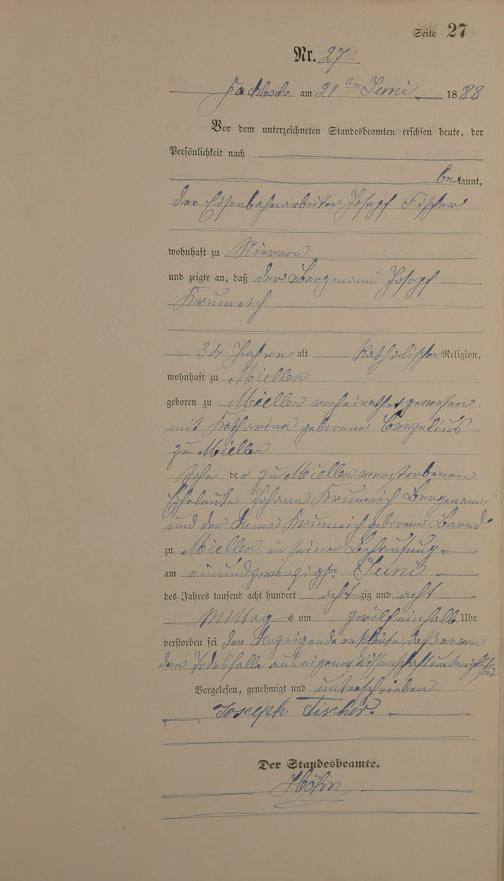 Seite 27
Nr. 27
Fachbach am 21ten Juni 1888
Vor dem unterzeichneten Standesbeamten erschien heute, der
Persönlichkeit nach
bekannt,
der Eisenbahnarbeiter Joseph Fischer
wohnhaft zu Nievern
und zeigte an, daß der Bergmann Joseph
Krumeich
34 Jahre alt katholischer Religion,
wohnhaft zu Miellen
geboren zu Miellen verheirathet gewesen
mit Katharina geborene
zu Miellen
Sohn der zu Miellen verstorbenen
Eheleute Johann Krumeich Bergmann
und der Anna Krumeich geborene
zu Miellen in seiner Behausung
am einundzwanzigsten Juni
des Jahres tausend acht hundert achtzig und acht
Mittags um zwölfeinhalb Uhr
verstorben sei der Anzeigende erklärte, daß er von
dem Todesfalle aus eigener Wissenschaft unterrichtet sei
Vorgelesen, genehmigt und unterschrieben
Joseph Fischer.
Der Standesbeamte.
Höhn